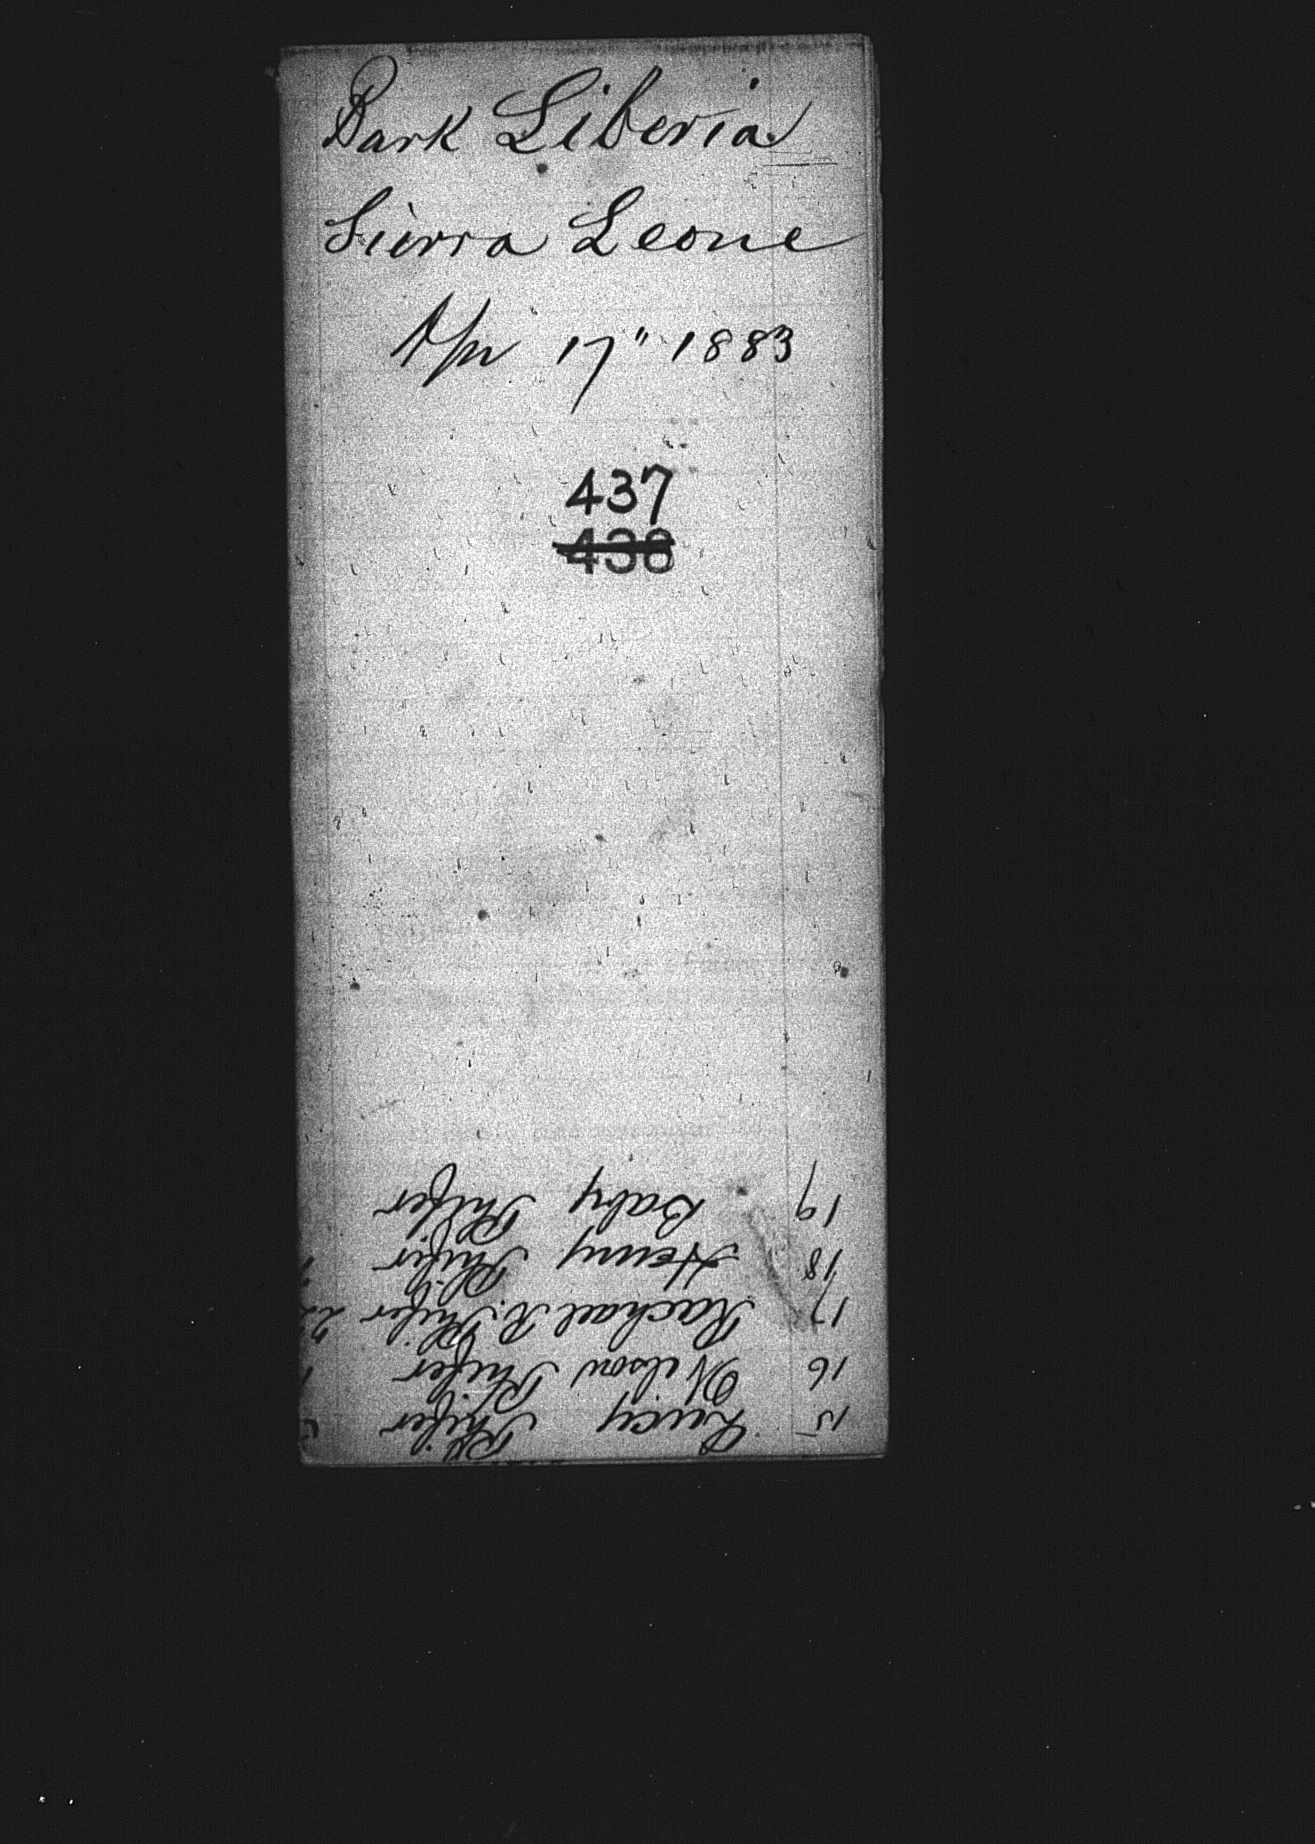 Bark Liberia
Sierra Leone
Apr 17" 1883
437
438
15 Lucy Phifer
16 Wilson Phifer
17 Rachael R. Phifer 22
18 Henry Phifer
19 Baby Phifer